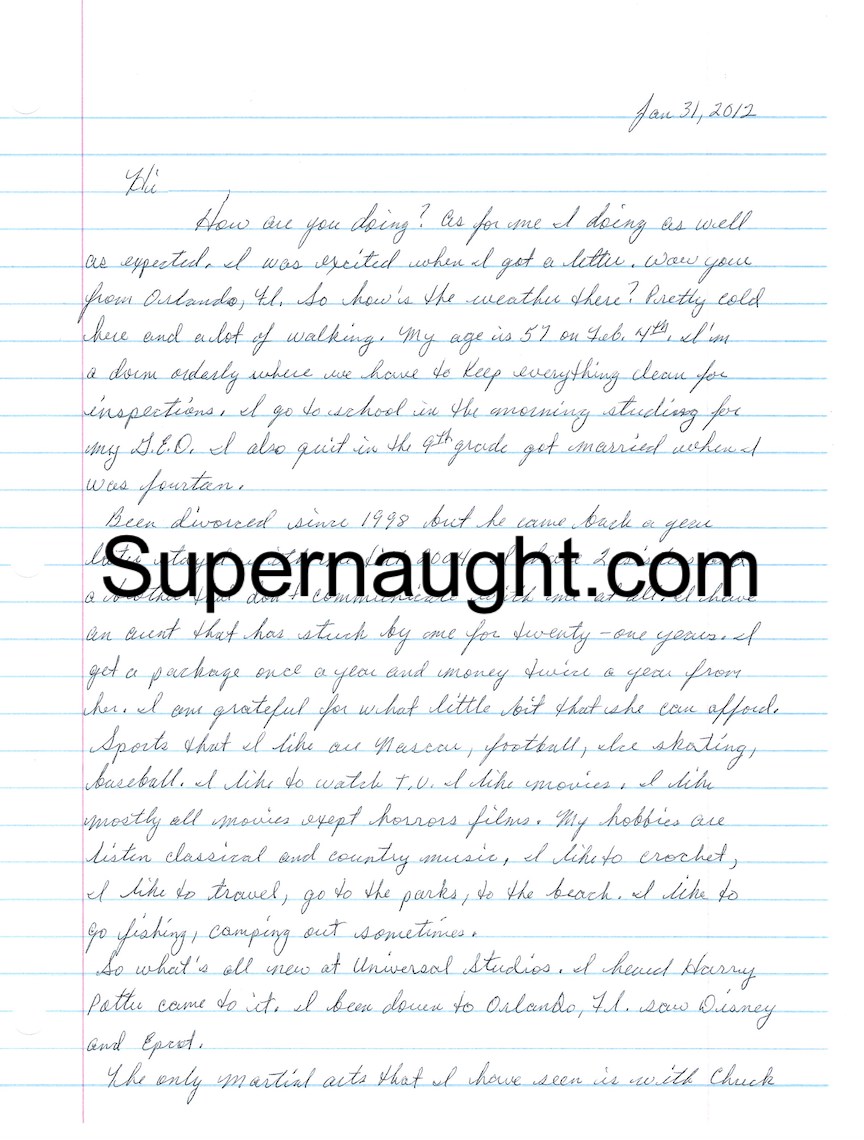 Jan 31, 2012
Hi
How are you doing? As for me I doing as well
as expected. I was excited when I got a letter. Wow your
from Orlando, Fl. So how's the weather there? Pretty cold
here and alot of walking. My age is 57 on Feb. 4th. I'm
a dorm orderly where we have to keep everything clean for
inspections. I go to school in the morning studing for
my G.E.D. I also quit in the 9th grade got married when I
was fourtan.
Been divorced since 1998 but he came back a year
2004
Supernaught.com
a brother that don't communicate with me at all. I have
an aunt that has stuck by me for twenty-one years. I
get a package once a year and money twice a year from
her. I am grateful for what little bit that she can afford.
Sports that I like are Nascar, football, ice skating,
baseball. I like to watch T.V. I like movies. I like
mostly all movies exept horrors films. My hobbies are
listen classical and country music, I like to crochet,
I like to travel, go to the parks, to the beach. I like to
go fishing, camping out sometimes.
So what's all new at Universal Studios. I heard Harry
Potter came to it. I been down to Orlando, Fl. saw Disney
and Epcot.
The only martial arts that I have seen is with Chuck